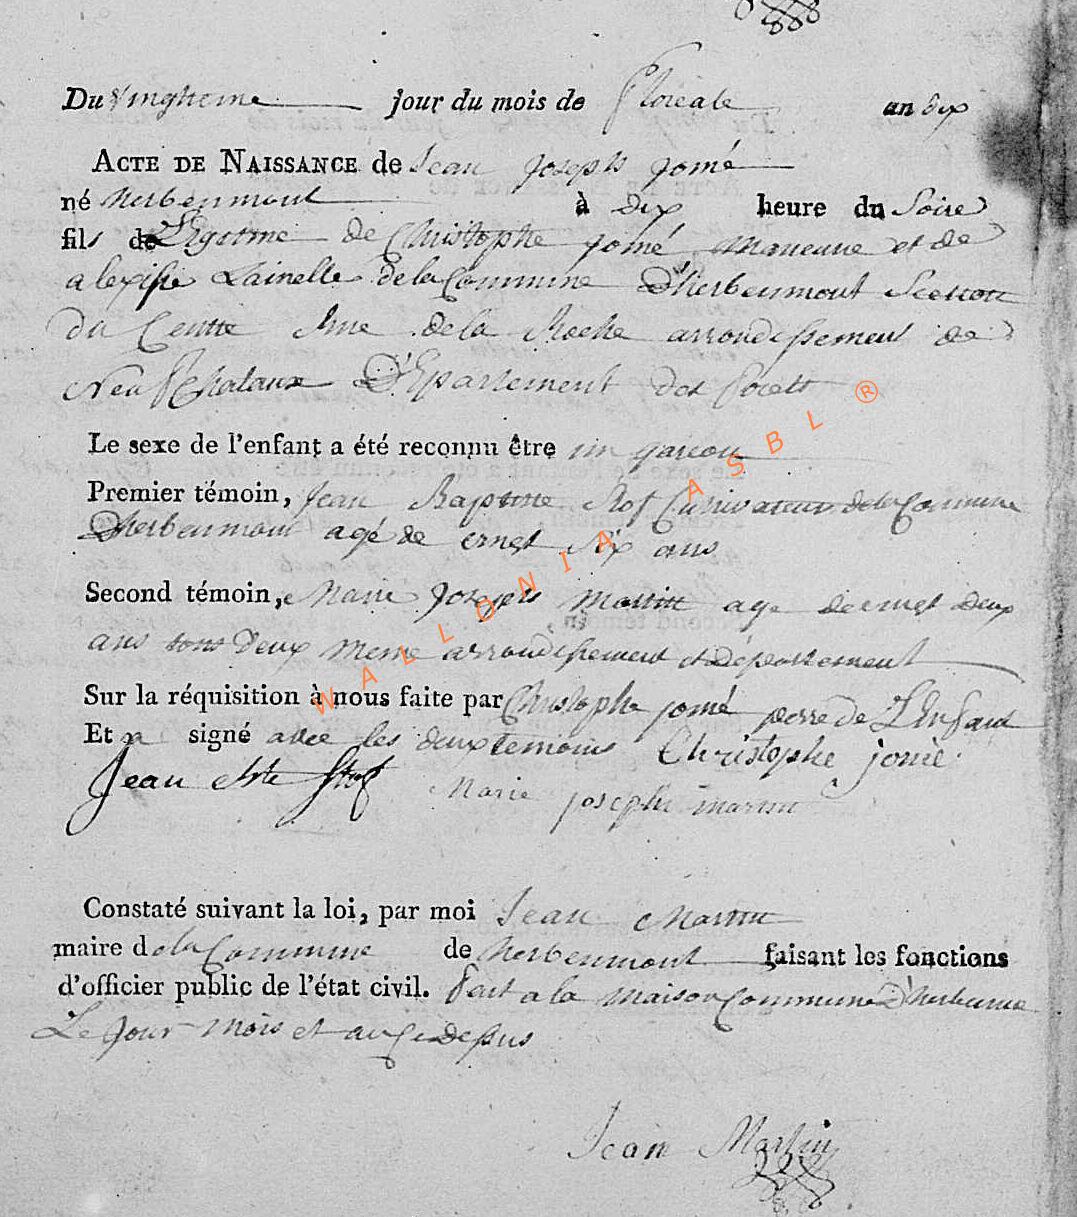 Du vingtieme jour du mois de floreale an dix
ACTE DE NAISSANCE de Jean joseph jomé
né herbeumont à dix heure du Soire
fils de Legitme de Christophe jomé maneuvre et de
alexisse Lainelle de la Commune D'herbeumont Section
du Centre de la Roche arrondissement de
Neufchataux D'Epartement des forett
Le sexe de l'enfant a été reconnu être un garcon
Premier témoin, Jean Baptitte Stof Cultivateur de la Commune
D'herbeumont agé de six ans
Second témoin, Marie Joseph Martin age deux
ans tous deux meme arrondissement et departement
Sur la réquisition à nous faite par Christophe jomé perre de L'Enfant
Et a signé avec les deux temoins Christophe jomé
Jean Bte Stof Marie joseph martin
WALLONIA ASBL ®
Constaté suivant la loi, par moi Jean Martin
maire de la Commune de herbeumont faisant les fonctions
d'officier public de l'état civil. fait a la maison Commune
Le jour mois et an Ci desus
Jean Martin